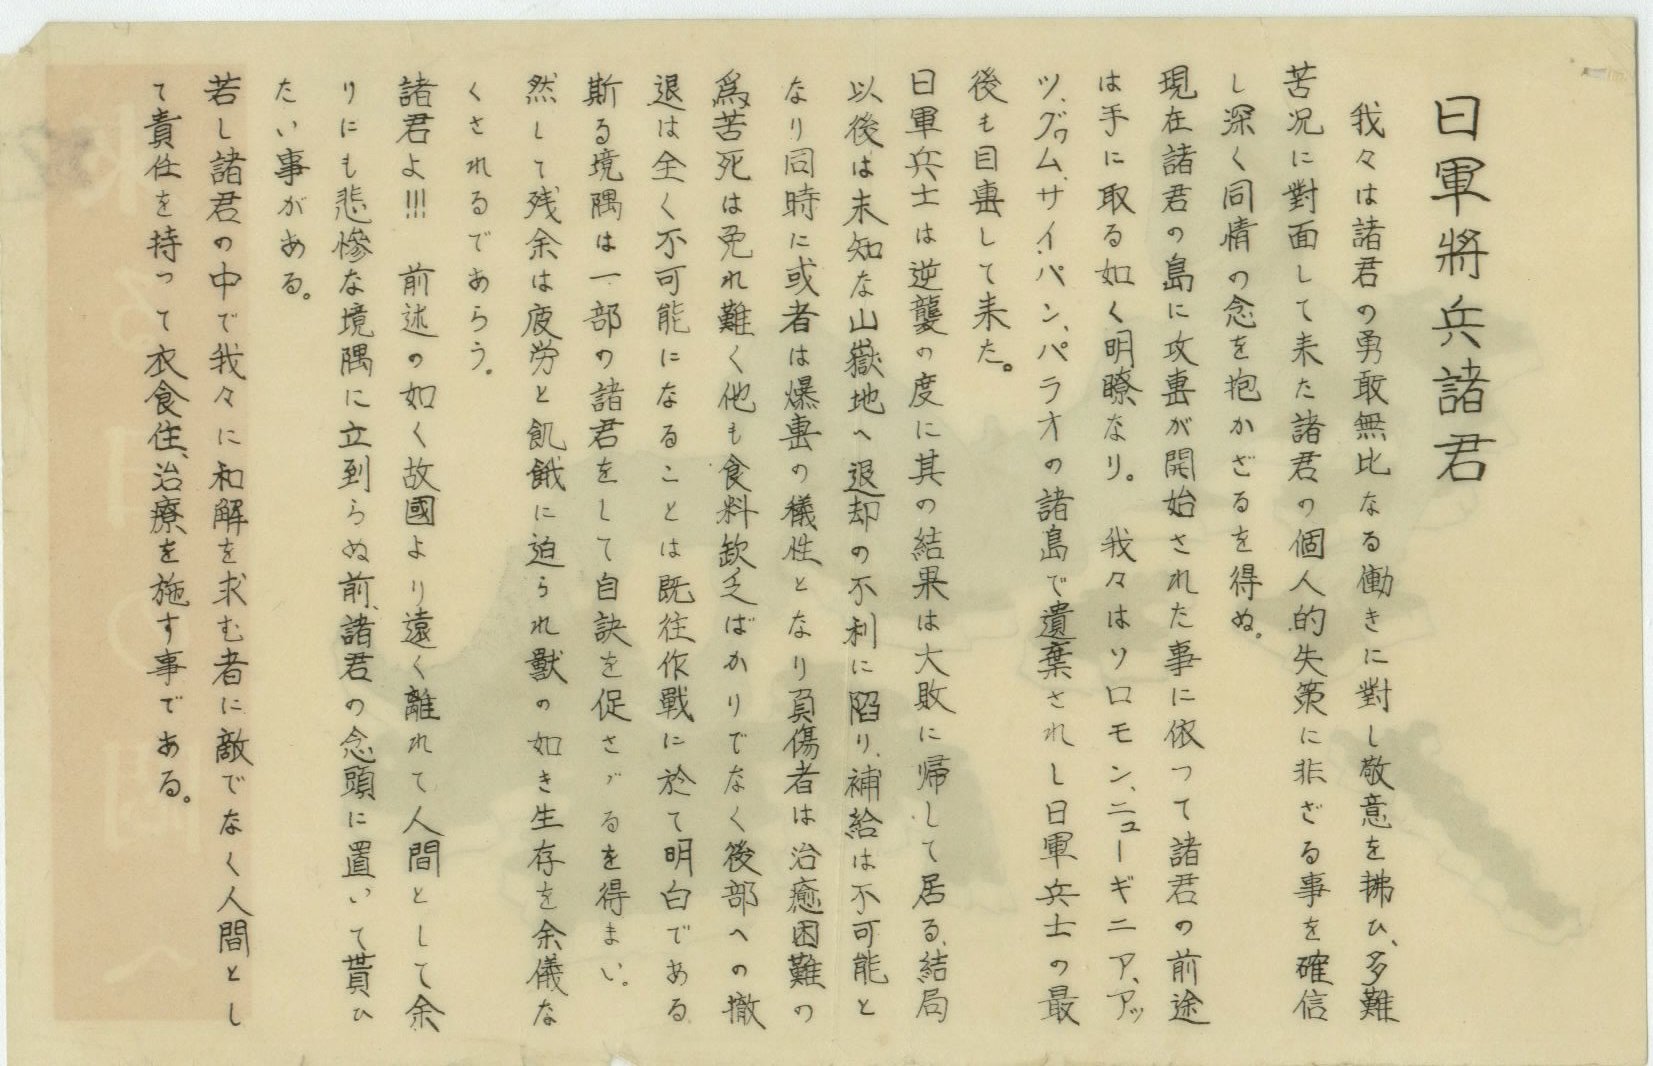 日軍將兵諸君
我々は諸君の勇敢無比なる働きに對し敬意を拂ひ、多難
苦況に對面して来た諸君の個人的失策に非ざる事を確信
し深く同情の念を抱かざるを得ぬ。
現在諸君の島に攻撃が開始された事に依つて諸君の前途
は手に取る如く明瞭なり。我々はソロモン、ニューギニア、アッ
ツ、グヮム、サイパン、パラオの諸島で遺棄されし日軍兵士の最
後も目撃して来た。
日軍兵士は逆襲の度に其の結果は大敗に帰して居る、結局
以後は未知な山嶽地へ退却の不利に陥り、補給は不可能と
なり同時に或者は爆撃の犠性となり負傷者は治癒困難の
爲苦死は免れ難く他も食料欽乏ばかりでなく後部への撤
退は全く不可能になることは既往作戰に於て明白である
斯る境隅は一部の諸君をして自訣を促さゞるを得まい。
然して残余は疲労と飢餓に迫られ獸の如き生存を余儀な
くされるであらう。
諸君よ!!! 前述の如く故國より遠く離れて人間として余
りにも悲慘な境隅に立到らぬ前、諸君の念頭に置いて貰ひ
たい事がある。
若し諸君の中で我々に和解を求む者に敵でなく人間とし
て責任を持つて衣食住、治療を施す事である。